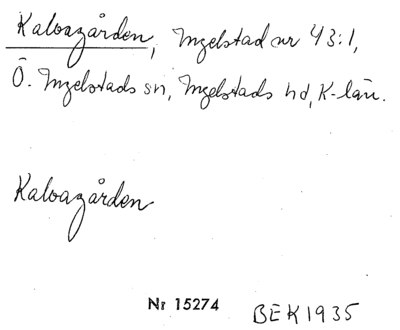 Kalvagården, Ingelstad nr 43:1,
Ö. Ingelstads sn, Ingelstads hd, K-län.
Kalvagården
Nr 15274 BEK1935